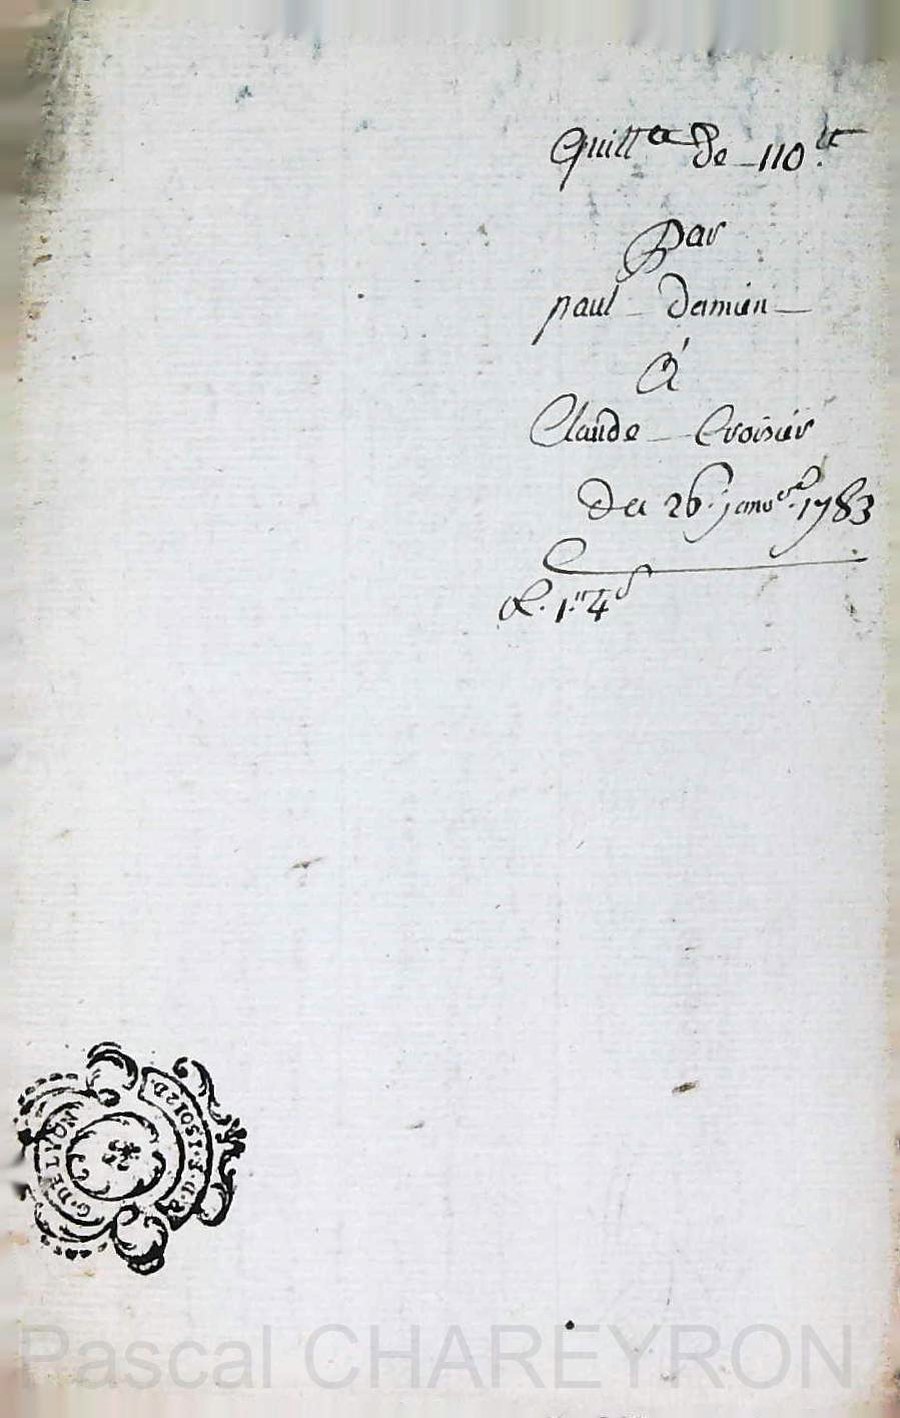 Quitt.ce de 110.tt
Par
paul Damien
A
Claude Croisier
Du 26. janv.er 1783
R. 1." 4 s
G. DE LYON
Pascal CHAREYRON